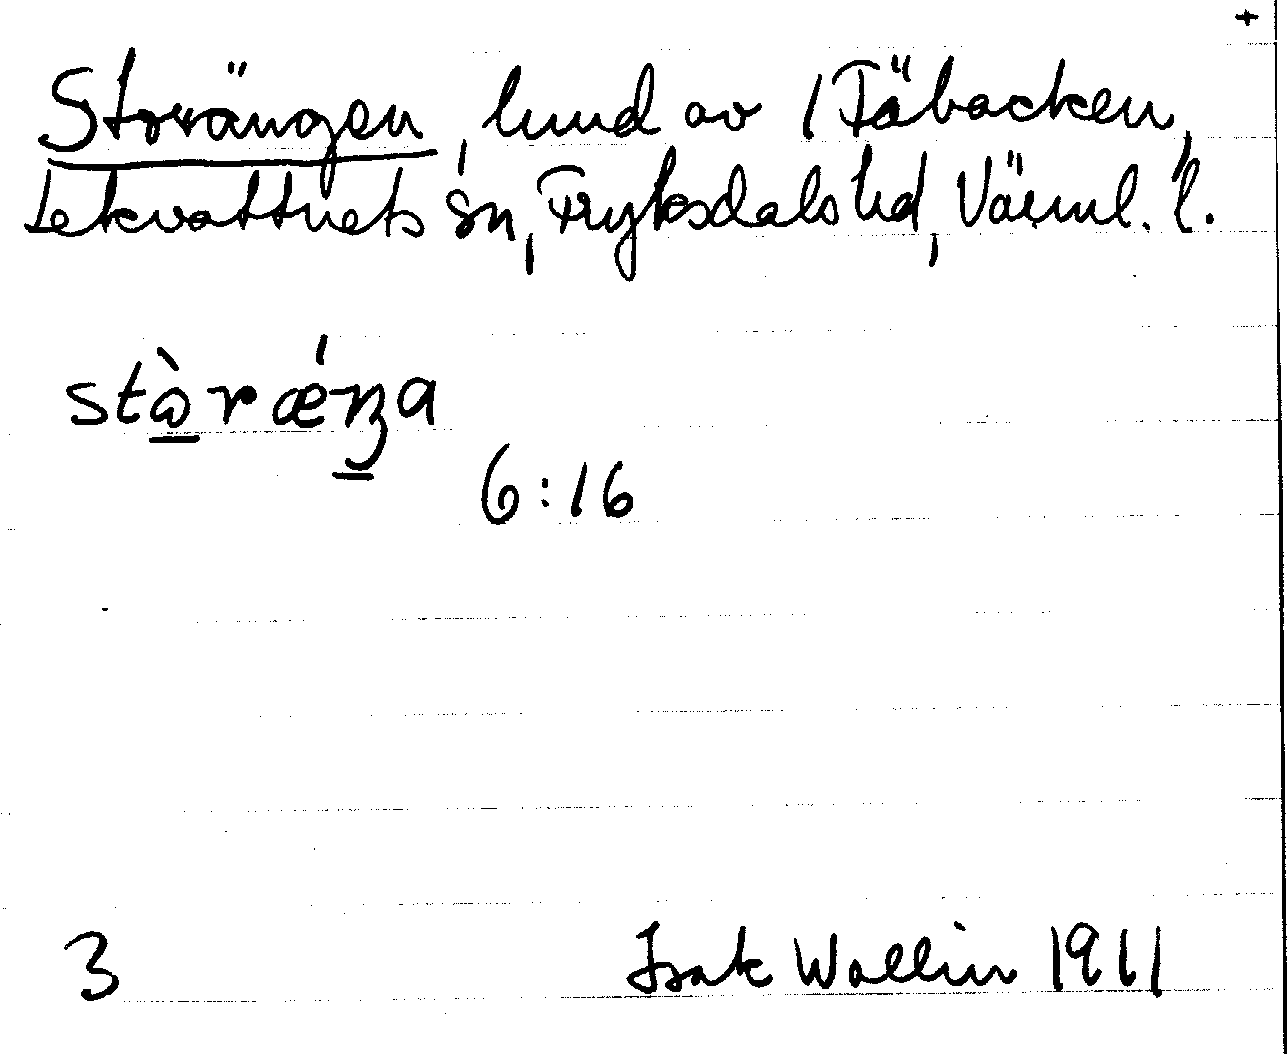 +
Storängen, lund av 1 Täbacken,
Lekvattnets sn, Fryksdals hd, Värml. l.
stò̱rǽŋ̱a
6:16
3 Isak Wallin 1911